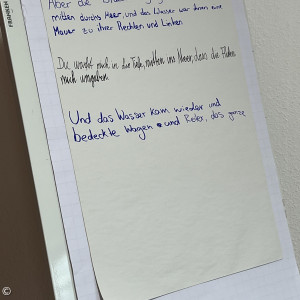 Aber die
mitten durchs Meer, und das Wasser war ihnen eine
Mauer zu ihrer Rechten und Linken.
Du warfst mich in die Tiefe, mitten ins Meer, dass die Fluten
mich umgaben.
Und das Wasser kam wieder und
bedeckte Wagen und Reiter, das ganze
FRANKEN
©